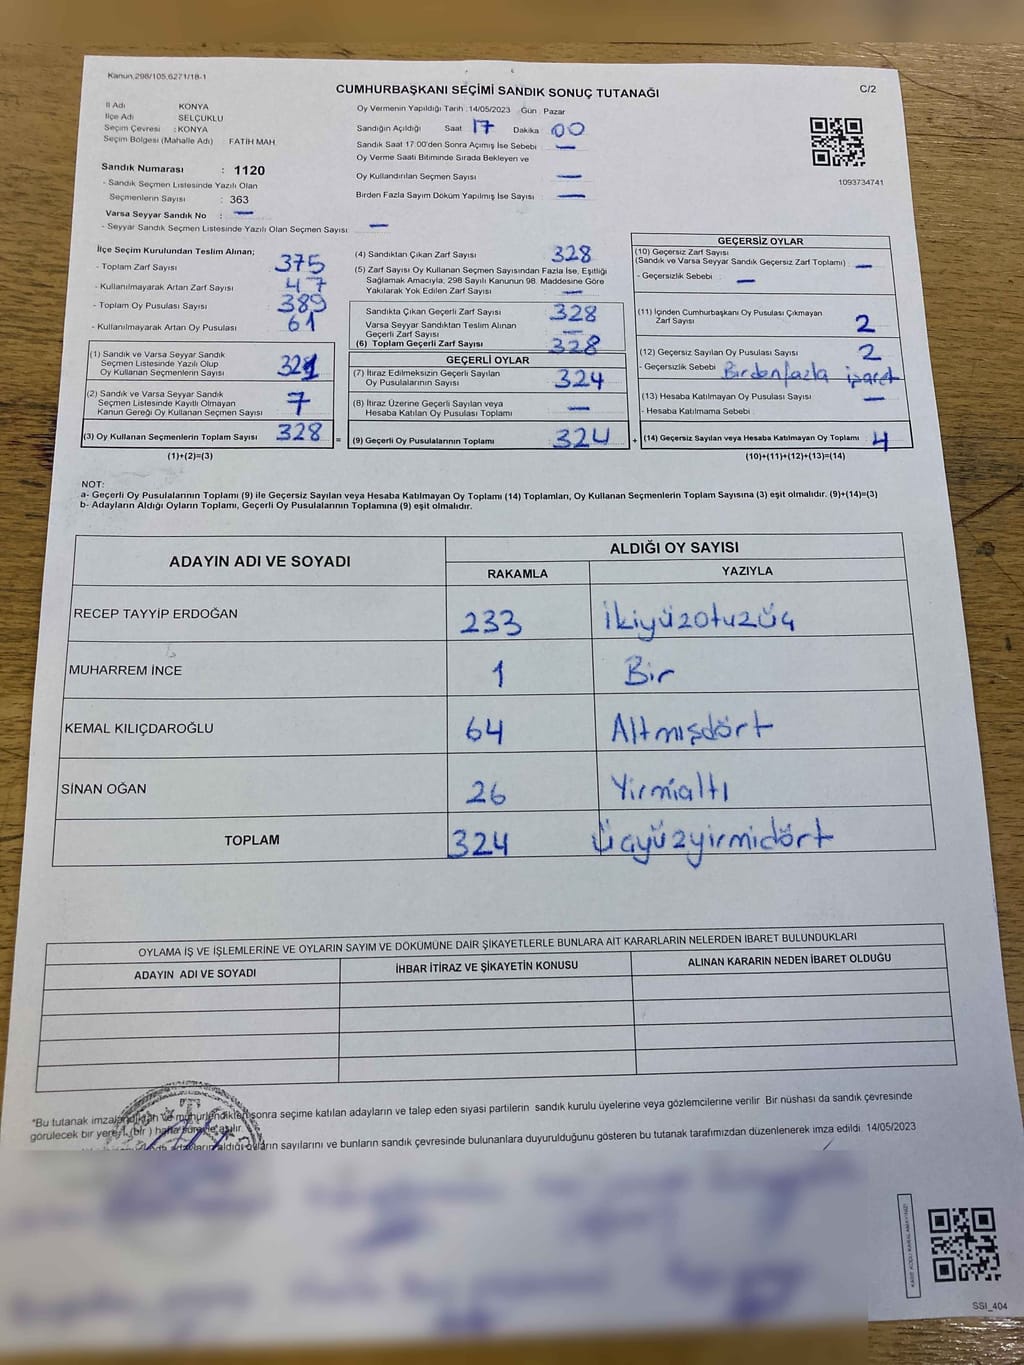 Kanun.298/105.6271/18-1
CUMHURBAŞKANI SEÇİMİ SANDIK SONUÇ TUTANAĞI
C/2
İl Adı KONYA
İlçe Adı SELÇUKLU
Seçim Çevresi : KONYA
Seçim Bölgesi (Mahalle Adı) FATİH MAH.
Oy Vermenin Yapıldığı Tarih :14/05/2023 Gün : Pazar
Sandığın Açıldığı Saat 17 Dakika 00
Sandık Saat 17:00'den Sonra Açımış İse Sebebi —
Oy Verme Saati Bitiminde Sırada Bekleyen ve
Oy Kullandırılan Seçmen Sayısı —
Birden Fazla Sayım Döküm Yapılmış İse Sayısı —
1093734741
Sandık Numarası : 1120
- Sandık Seçmen Listesinde Yazılı Olan
Seçmenlerin Sayısı : 363
Varsa Seyyar Sandık No : —
- Seyyar Sandık Seçmen Listesinde Yazılı Olan Seçmen Sayısı: —
İlçe Seçim Kurulundan Teslim Alınan;
- Toplam Zarf Sayısı 375
- Kullanılmayarak Artan Zarf Sayısı 47
- Toplam Oy Pusulası Sayısı 389
- Kullanılmayarak Artan Oy Pusulası 61
(1) Sandık ve Varsa Seyyar Sandık
Seçmen Listesinde Yazılı Olup
Oy Kullanan Seçmenlerin Sayısı 321
(2) Sandık ve Varsa Seyyar Sandık
Seçmen Listesinde Kayıtlı Olmayan
Kanun Gereği Oy Kullanan Seçmen Sayısı 7
(3) Oy Kullanan Seçmenlerin Toplam Sayısı 328 =
(1)+(2)=(3)
(4) Sandıktan Çıkan Zarf Sayısı 328
(5) Zarf Sayısı Oy Kullanan Seçmen Sayısından Fazla İse, Eşitliği
Sağlamak Amacıyla, 298 Sayılı Kanunun 98. Maddesine Göre
Yakılarak Yok Edilen Zarf Sayısı —
Sandıkta Çıkan Geçerli Zarf Sayısı 328
Varsa Seyyar Sandıktan Teslim Alınan
Geçerli Zarf Sayısı —
(6) Toplam Geçerli Zarf Sayısı 328
GEÇERLİ OYLAR
(7) İtiraz Edilmeksizin Geçerli Sayılan
Oy Pusulalarının Sayısı 324
(8) İtiraz Üzerine Geçerli Sayılan veya
Hesaba Katılan Oy Pusulası Toplamı —
(9) Geçerli Oy Pusulalarının Toplamı 324 +
GEÇERSİZ OYLAR
(10) Geçersiz Zarf Sayısı
(Sandık ve Varsa Seyyar Sandık Geçersiz Zarf Toplamı) —
- Geçersizlik Sebebi : —
(11) İçinden Cumhurbaşkanı Oy Pusulası Çıkmayan
Zarf Sayısı 2
(12) Geçersiz Sayılan Oy Pusulası Sayısı 2
- Geçersizlik Sebebi Birden fazla işaret
(13) Hesaba Katılmayan Oy Pusulası Sayısı —
- Hesaba Katılmama Sebebi :
(14) Geçersiz Sayılan veya Hesaba Katılmayan Oy Toplamı 4
(10)+(11)+(12)+(13)=(14)
NOT:
a- Geçerli Oy Pusulalarının Toplamı (9) ile Geçersiz Sayılan veya Hesaba Katılmayan Oy Toplamı (14) Toplamları, Oy Kullanan Seçmenlerin Toplam Sayısına (3) eşit olmalıdır. (9)+(14)=(3)
b- Adayların Aldığı Oyların Toplamı, Geçerli Oy Pusulalarının Toplamına (9) eşit olmalıdır.
ADAYIN ADI VE SOYADI
ALDIĞI OY SAYISI
RAKAMLA YAZIYLA
RECEP TAYYİP ERDOĞAN 233 İkiyüzotuzüç
MUHARREM İNCE 1 Bir
KEMAL KILIÇDAROĞLU 64 Altmışdört
SİNAN OĞAN 26 Yirmialtı
TOPLAM 324 Üçyüzyirmidört
OYLAMA İŞ VE İŞLEMLERİNE VE OYLARIN SAYIM VE DÖKÜMÜNE DAİR ŞİKAYETLERLE BUNLARA AİT KARARLARIN NELERDEN İBARET BULUNDUKLARI
ADAYIN ADI VE SOYADI
İHBAR İTİRAZ VE ŞİKAYETİN KONUSU
ALINAN KARARIN NEDEN İBARET OLDUĞU
"Bu tutanak imzalandıktan ve mühürlendikten sonra seçime katılan adayların ve talep eden siyasi partilerin sandık kurulu üyelerine veya gözlemcilerine verilir Bir nüshası da sandık çevresinde
görülecek bir yere 1 (bir) hafta süreyle asılır.
adayların aldığı oyların sayılarını ve bunların sandık çevresinde bulunanlara duyurulduğunu gösteren bu tutanak tarafımızdan düzenlenerek imza edildi. 14/05/2023
SSI_404